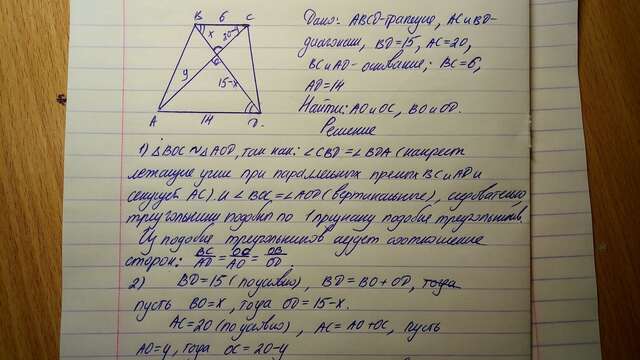 B 6 C
x 20-y
O
y 15-x
A 14 D
Дано: ABCD-трапеция, AC и BD-
диагонали, BD=15, AC=20,
BC и AD-основание; BC=6,
AD=14
Найти: AO и OC, BO и OD.
Решение
1) △BOC ~ △AOD, так как: ∠CBD=∠BDA (накрест
лежащие углы при параллельных прямых BC и AD и
секущей AC) и ∠BOC=∠AOD (вертикальные), следовательно
треугольники подобны по 1 признаку подобие треугольников.
Из подобие треугольников следует соотношение
сторон: BC/AD = OC/AO = OB/OD.
2) BD=15 (по условию), BD=BO+OD, тогда
пусть BO=x, тогда OD=15-x.
AC=20 (по условию), AC=AO+OC, пусть
AO=y, тогда OC=20-y